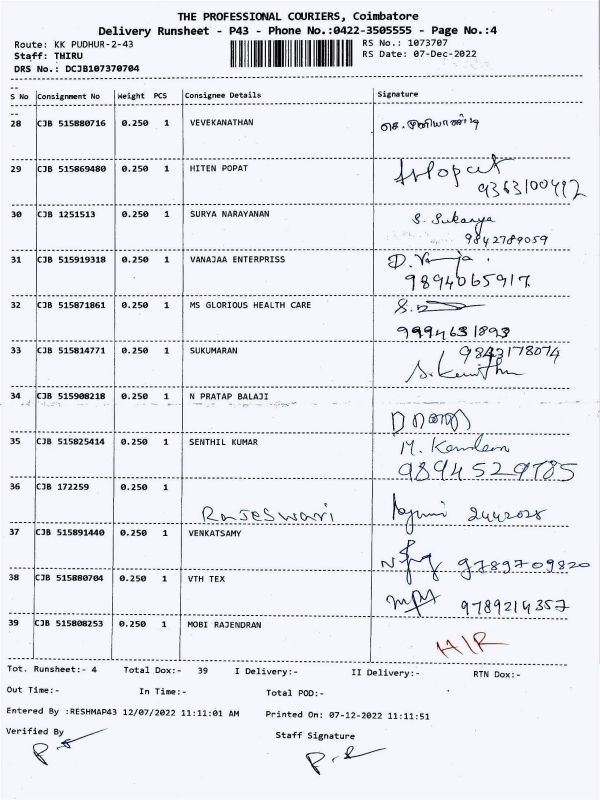 THE PROFESSIONAL COURIERS, Coimbatore
Delivery Runsheet - P43 - Phone No.:0422-3505555 - Page No.:4
Route: KK PUDHUR-2-43 RS No.: 1073707
Staff: THIRU RS Date: 07-Dec-2022
DRS No.: DCJB107370704
S No Consignment No Weight PCS Consignee Details Signature
28 CJB 515880716 0.250 1 VEVEKANATHAN
29 CJB 515869480 0.250 1 HITEN POPAT
9363100492
30 CJB 1251513 0.250 1 SURYA NARAYANAN S. Sukanya
9842789059
31 CJB 515919318 0.250 1 VANAJAA ENTERPRISS
9894065917
32 CJB 515871861 0.250 1 MS GLORIOUS HEALTH CARE
9994631893
33 CJB 515814771 0.250 1 SUKUMARAN 9843178074
34 CJB 515908218 0.250 1 N PRATAP BALAJI
35 CJB 515825414 0.250 1 SENTHIL KUMAR
9894529785
36 CJB 172259 0.250 1
Rajeswari 2442028
37 CJB 515891440 0.250 1 VENKATSAMY
9789709820
38 CJB 515880704 0.250 1 VTH TEX
9789214357
39 CJB 515808253 0.250 1 MOBI RAJENDRAN
H/R
Tot. Runsheet:- 4 Total Dox:- 39 I Delivery:- II Delivery:- RTN Dox:-
Out Time:- In Time:- Total POD:-
Entered By :RESHMAP43 12/07/2022 11:11:01 AM Printed On: 07-12-2022 11:11:51
Verified By Staff Signature